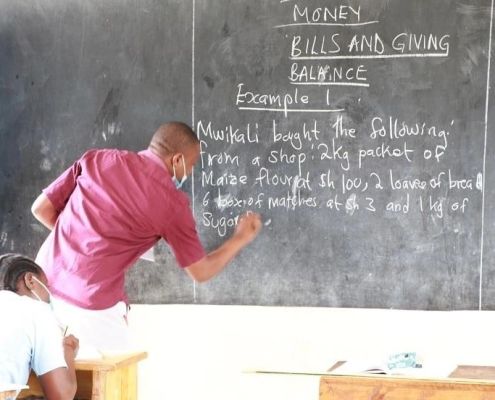 MONEY
BILLS AND GIVING
BALANCE
Example 1
Mwikali bought the following:
from a shop: 2kg packet of
Maize flour at sh 100, 2 loaves of bread
6 box of matches at sh 3 and 1kg of
Sugar